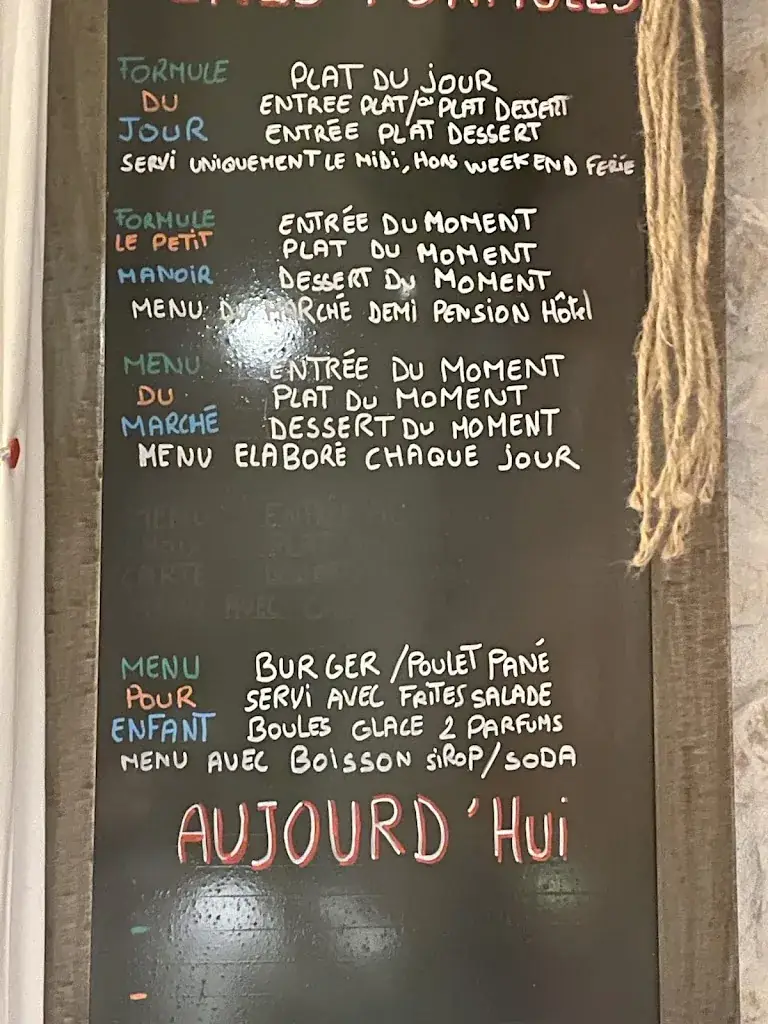 FORMULES
FORMULE PLAT DU JOUR
DU ENTREE PLAT/ou PLAT DESSERT
JOUR ENTRÉE PLAT DESSERT
SERVI UNIQUEMENT LE MIDI, HORS WEEK END FERIE
FORMULE ENTRÉE DU MOMENT
LE PETIT PLAT DU MOMENT
MANOIR DESSERT DU MOMENT
MENU DU MARCHÉ DEMI PENSION HÔtel
MENU ENTRÉE DU MOMENT
DU PLAT DU MOMENT
MARCHÉ DESSERT DU MOMENT
MENU ELABORÉ CHAQUE JOUR
MENU
CARTE
AVEC
MENU BURGER /POULET PANÉ
POUR SERVI AVEC FRITES SALADE
ENFANT BOULES GLACE 2 PARFUMS
MENU AVEC BOISSON SIROP/SODA
AUJOURD'HUI
-
-